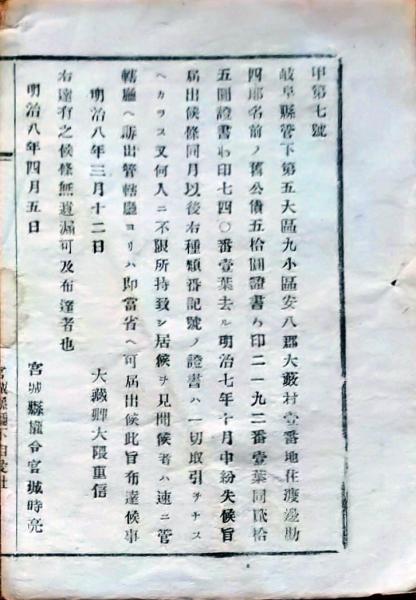 甲第七號
岐阜縣管下第五大區九小區安八郡大藪村壹番地住渡邉勘
四郎名前ノ舊公債五拾圓證書ら印二一九二番壹葉同貳拾
五圓證書わ印七四〇番壹葉去ル明治七年十月中紛失候旨
届出候條同月以後右種類番記號ノ證書ハ一切取引ヲナス
ヘカラス又何人ニ不限所持致シ居候ヲ見聞候者ハ速ニ管
轄廳ヘ訴出管轄廳ヨリハ即當省ヘ可届出候此旨布達候事
明治八年三月十二日
大藏卿大隈重信
右達有之候條無遺漏可及布達者也
明治八年四月五日
宮城縣權令宮城時亮